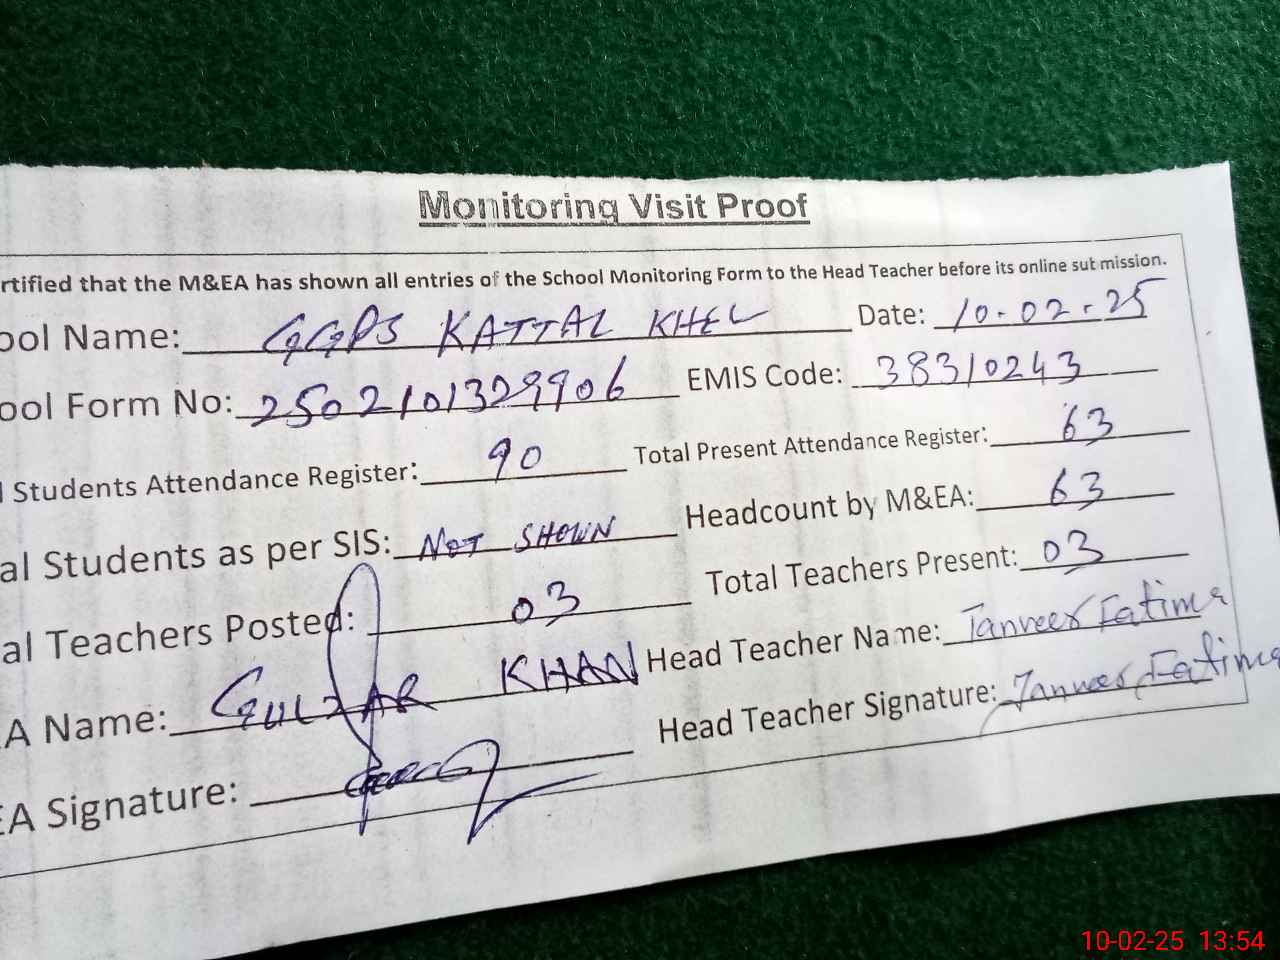 Monitoring Visit Proof
rtified that the M&EA has shown all entries of the School Monitoring Form to the Head Teacher before its online submission.
ool Name: GGPS KATTAL KHEL Date: 10-02-25
ool Form No: 2502101329906 EMIS Code: 38310243
l Students Attendance Register: 90 Total Present Attendance Register: 63
al Students as per SIS: NOT SHOWN Headcount by M&EA: 63
al Teachers Posted: 03 Total Teachers Present: 03
A Name: GULZAR KHAN Head Teacher Name: Tanveer Fatima
EA Signature: Head Teacher Signature: Tanveer Fatima
10-02-25 13:54